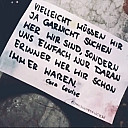 VIELLEICHT MÜSSEN WIR
JA GARNICHT SUCHEN
WER WIR SIND, SONDERN
UNS EINFACH NUR DARAN
ERINNERN WER WIR SCHON
IMMER WAREN.